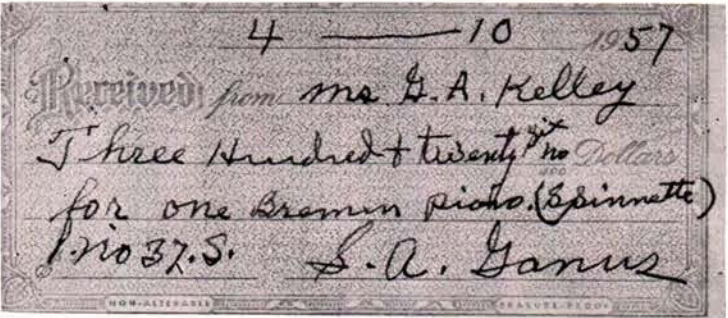 4 — 10 1957
Received from Mr G. A. Kelley
Three Hundred & twenty six no/100 Dollars
for one Bremen piano. (Spinnette)
no 37.S. S. A. Ganus
NON-ALTERABLE